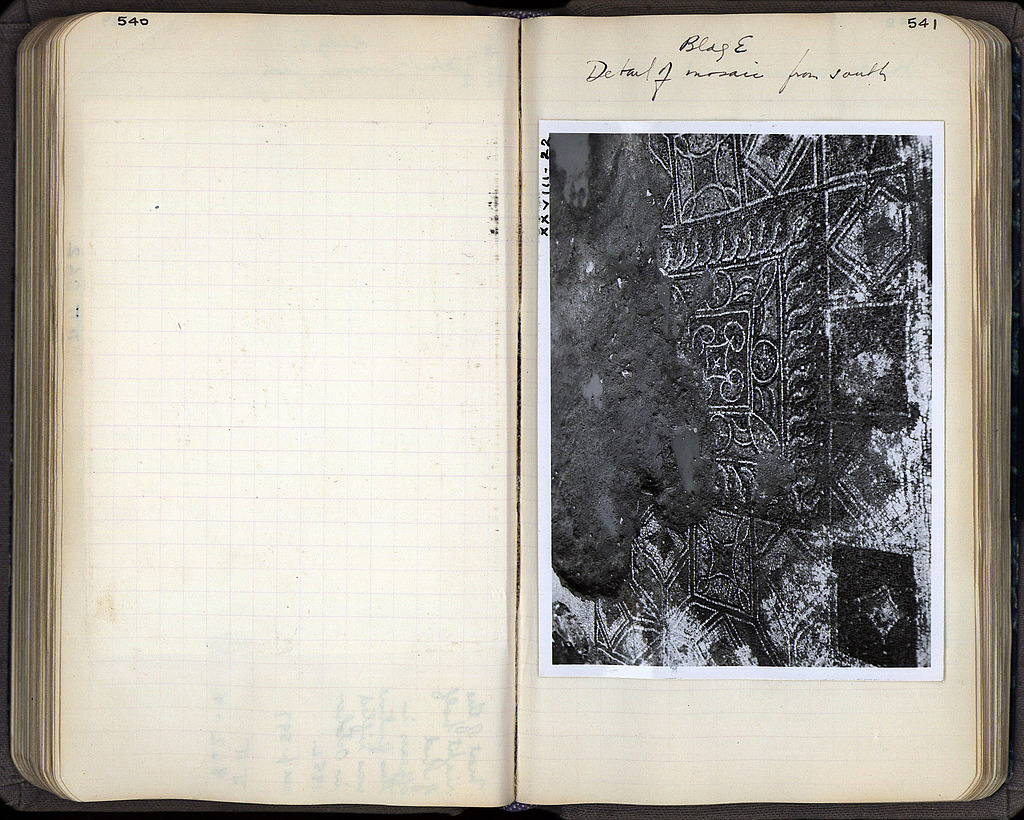 540
541
Bldg E
Detail of mosaic from south
XXVIII-22